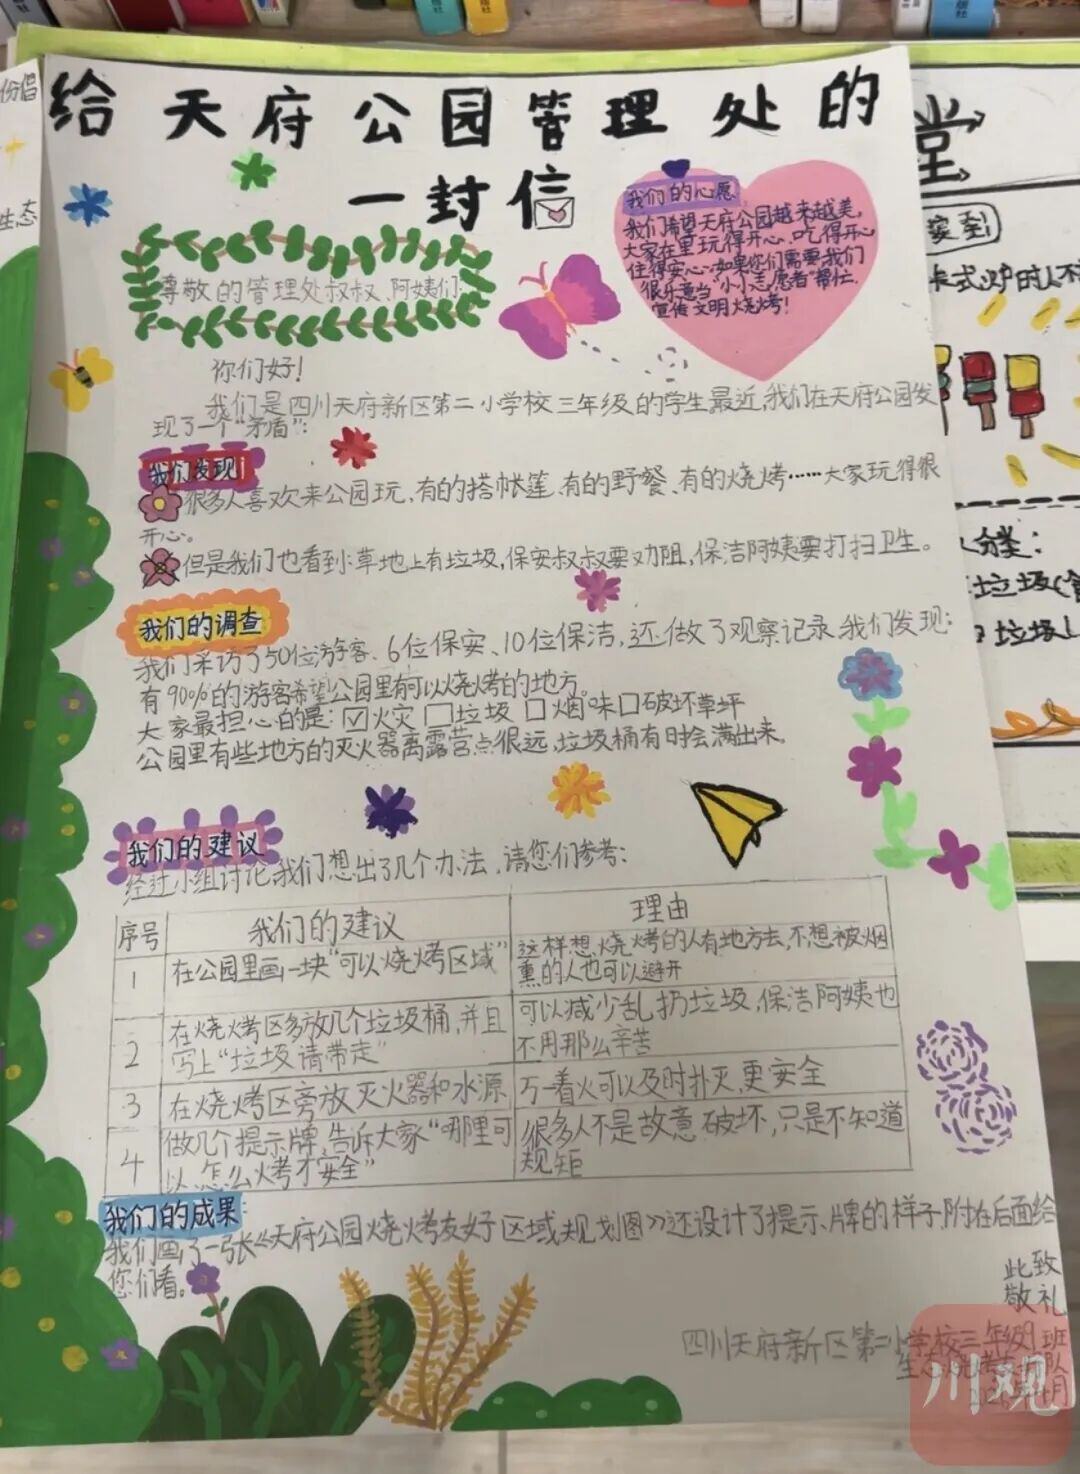 给天府公园管理处的
一封信
我们的心愿
我们希望天府公园越来越美,
大家在里玩得开心、吃得开心
住得安心.如果你们需要,我们
很乐意当"小小志愿者"帮忙.
宣传文明烧烤!
尊敬的管理处叔叔、阿姨们:
你们好!
我们是四川天府新区第二小学校三年级的学生.最近,我们在天府公园发
现了一个"矛盾":
我们发现
很多人喜欢来公园玩、有的搭帐篷、有的野餐、有的烧烤……大家玩得很
开心。
但是我们也看到:草地上有垃圾,保安叔叔要劝阻,保洁阿姨要打扫卫生。
我们的调查
我们采访了50位游客、6位保安、10位保洁,还做了观察记录.我们发现:
有90%的游客希望公园里有可以烧烤的地方。
大家最担心的是:☑火灾 □垃圾 □烟味□破坏草坪
公园里有些地方的灭火器离露营点很远,垃圾桶有时会满出来。
我们的建议
经过小组讨论,我们想出了几个办法,请您们参考:
序号 我们的建议 理由
1 在公园里画一块"可以烧烤区域" 这样想烧烤的人有地方去,不想被烟
熏的人也可以避开
2 在烧烤区多放几个垃圾桶,并且
写上"垃圾请带走" 可以减少乱扔垃圾,保洁阿姨也
不用那么辛苦
3 在烧烤区旁放灭火器和水源 万一着火可以及时扑灭,更安全
4 做几个提示牌,告诉大家"哪里可
以,怎么火考才安全" 很多人不是故意破坏,只是不知道
规矩
我们的成果
我们画了一张《天府公园烧烤友好区域规划图》还设计了提示牌的样子.附在后面给
您们看。
此致
敬礼
四川天府新区第二小学校三年级9班
川观
份倡
生态
堂
卡式炉时
分类:
垃圾
垃圾